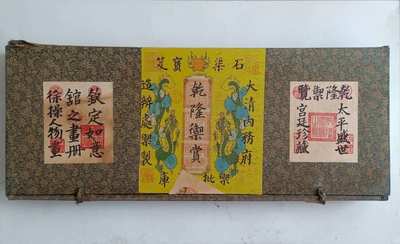 乾隆禦覽
太平盛世
宮廷珍藏
石渠寶笈
大清內務府
乾隆禦賞
造辦處禦製
禦批庫
欽定如意
館之畫冊
徐操人物畫